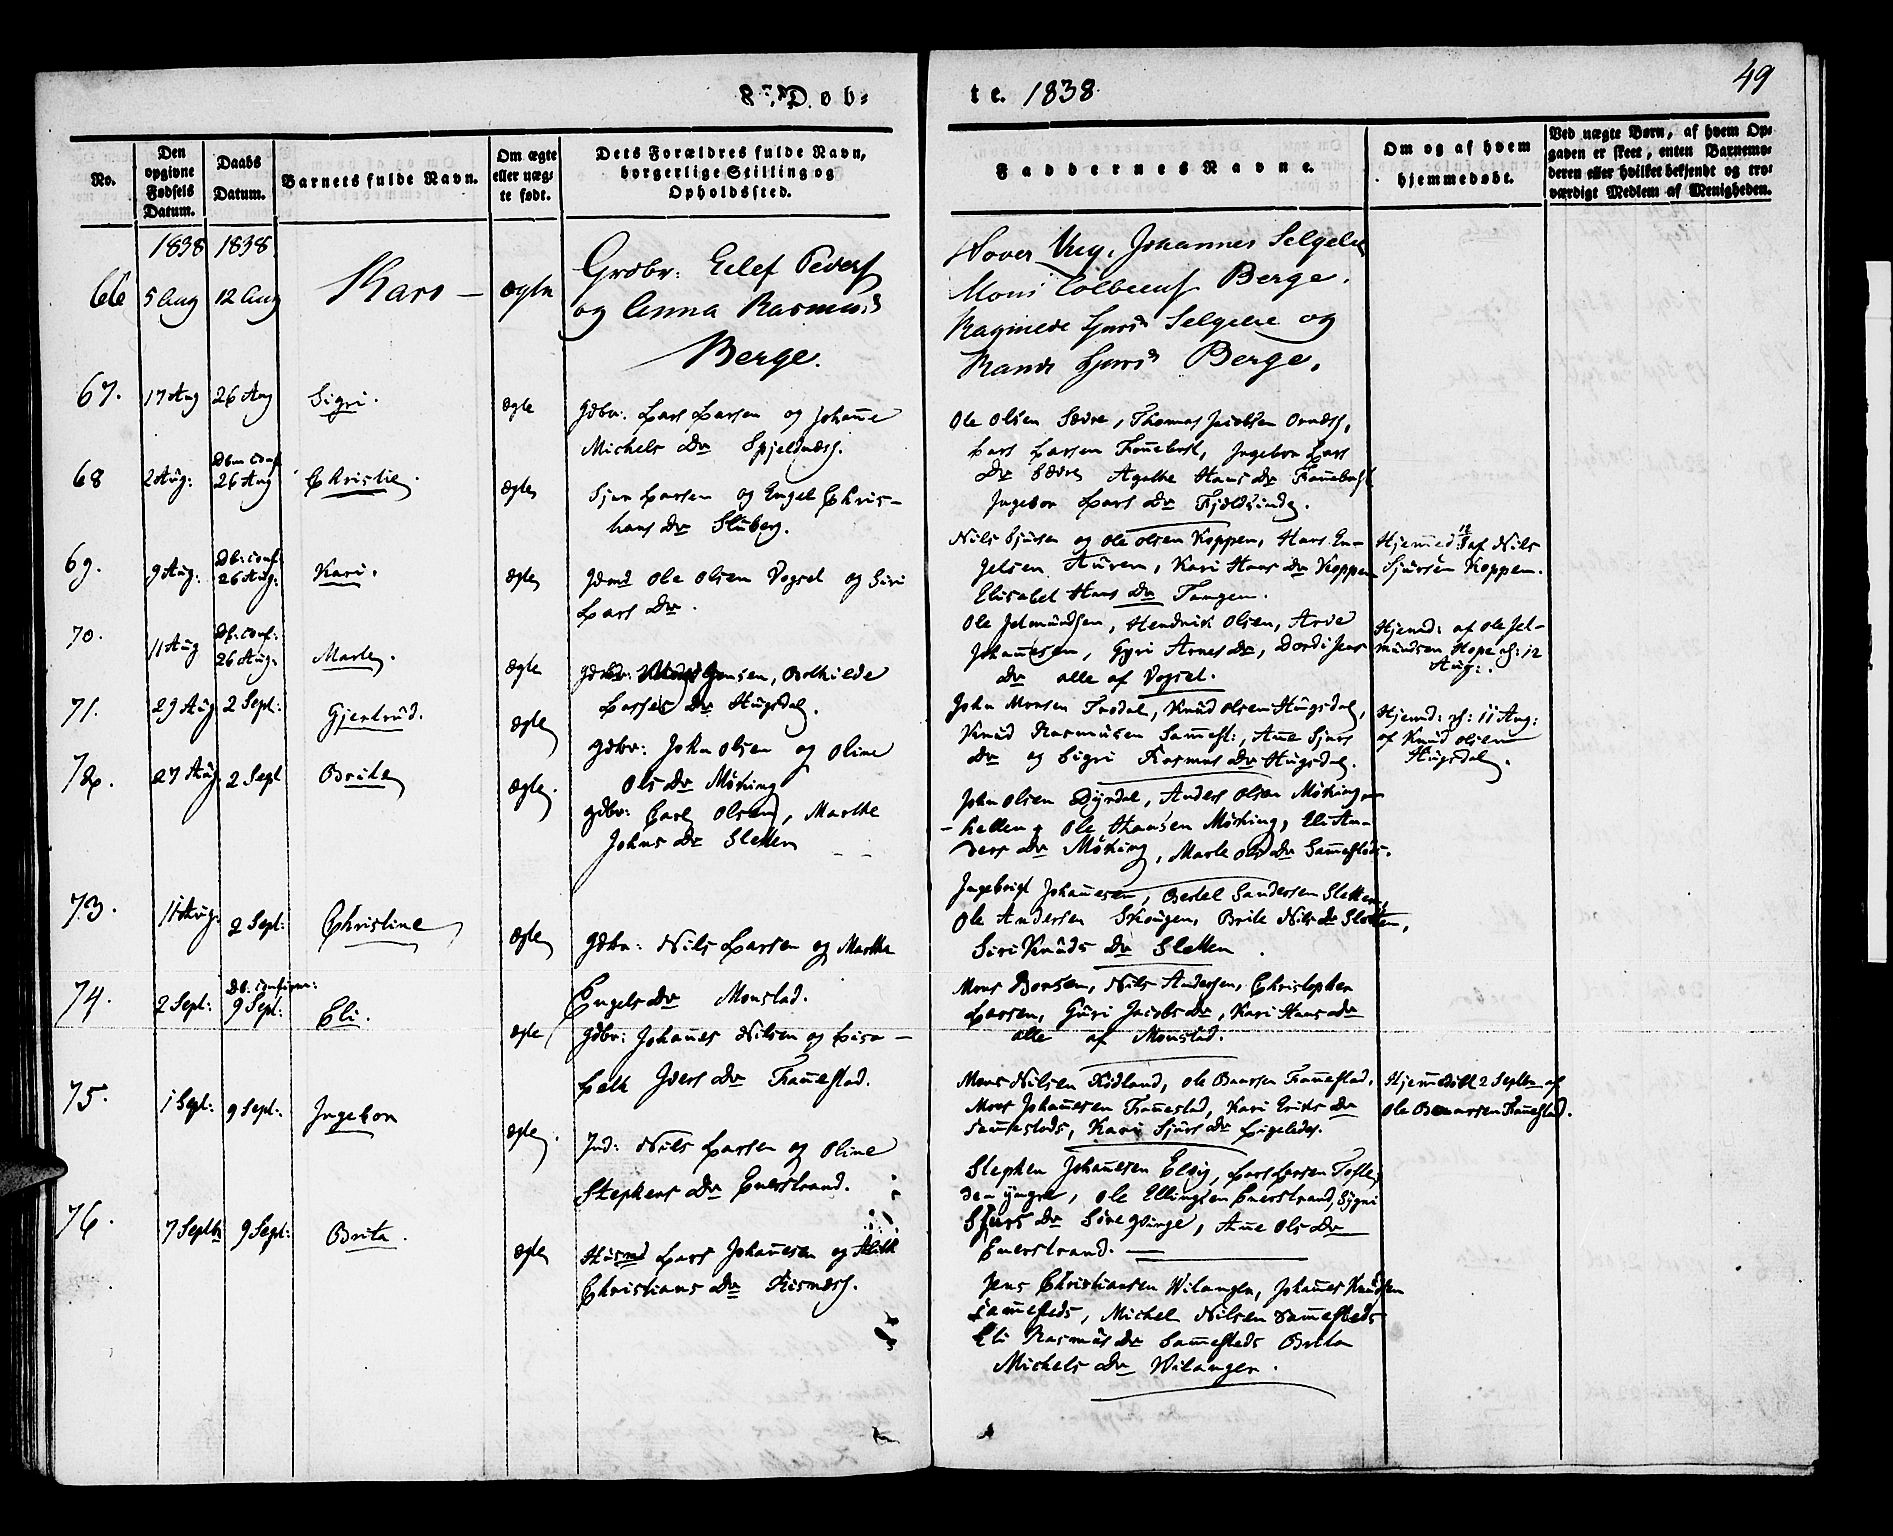 Døb-
te. 1838
49
No.
Den opgivne Fødsels Datum.
Daabs Datum.
Barnets fulde Navn.
Om ægte eller uægte født.
Dets Forældres fulde Navn, borgerlige Stilling og Opholdssted.
Faddernes Navne.
Om og af hvem hjemmedøbt.
Ved uægte Børn, af hvem Opgaven er skeet, enten Barnemoderen eller hvilket bekjendt og troværdigt Medlem af Menigheden.
1838 1838
66 5 Aug 12 Aug Kari ægte
Grdbr: Eilef Peders
og Anna Rasmus
Berge.
Johannes Selgelie
Mons Berge.
Selgelie og
Berge.
67. 17 Aug 26 Aug Sigri. ægte
Gdbr: Lars Larsen og Johanne
Michels Dr Spjeldnæs.
Ole Olsen Sædre, Thomas Jacobsen
Lars Larsen Ingebor Lars
Dr Sædre Agathe Hans Dr
Ingebor Lars Dr
68 2 Aug: Db: Conf 26 Aug Christie. ægte
Sjur Larsen og Engel Chris-
tians Dr
Nils Sjursen og Ole Olsen Koppen, Hans En-
gelsen Kari Hans Dr Koppen
Elisabet Hans Dr Tangen.
Hjemmed: af Nils
Sjursen Koppen.
69. 9 Aug: Db: Conf: 26 Aug: Kari. ægte
Ole Olsen Vogsel og Siri
Lars Dr.
Ole Jelmundsen, Hendrik Olsen, Arve
Johannesen, Gyri Arnes Dr, Dordi Jens
Dr alle af Vogsel.
Hjemd: af Ole Jel-
mundsen Hope d: 12
Aug:.
70. 11 Aug Db: Conf: 26 Aug: Marte. ægte
Gdbr: Jensen, Bothilde
Lasses Dr Hugsdal.
John Monsen Trodal, Knud Olsen Hugsdal,
Knud Rasmusen Sammest:, Ane Sjurs
Dr og Sigri Rasmus Dr Hugsdal.
Hjemd: d: 11 Aug:
af Knud Olsen
Hugsdal.
71. 29 Aug 2 Sept: Gjertrud. ægte
Gdbr: John Olsen og Oline
Ols Dr Møking
John Olsen Dyrdal, Anders Olsen Møking-
hellen, Ole Hansen Møking, Eli An-
ders Dr Møking, Marte Ols Dr Sammesteds.
72. 27 Aug 2 Sept Brite ægte.
Gdbr: Olsen, Marthe
Johns Dr Sletten
Ingebrigt Johannesen, Bertel Sandersen Sletten,
Ole Andersen Skougen, Brite Nils Dr Sletten,
Siri Knuds Dr Sletten.
73. 11 Aug: 2 Sept: Christine ægte
Gdbr: Nils Larsen og Marthe
Engels Dr Monstad.
Mons Nils Andersen, Christopher
Larsen, Guri Jacobs Dr, Kari Hans Dr
alle af Monstad.
74. 2 Sept: Db: Confirm: 9 Sept: Eli. ægte
Gdbr: Johannes Nilsen og Lisa-
beth Ivers Dr Frammestad.
Mons Nilsen Rødland, Ole Frammestad,
Mons Johannesen Frammestad, Kari Eriks Dr
Sammesteds, Kari Sjurs Dr
Hjemmedøbt 2 Septbr af
Ole Frammestad.
75. 1 Sept: 9 Sept: Ingebor ægte.
Ind: Nils Larsen og Oline
Stephens Dr Enerstrand.
Stephen Johannesen Elvig, Lars Larsen Tofte
den yngre, Ole Ellingsen Enerstrand, Sygni
Sjurs Dr Ane Ols Dr
Enerstrand.
76. 7 Septbr 9 Sept: Brita. ægte
Husmd Lars Johannesen og
Christians Dr Risnæs.
Jens Christiansen Wilanger, Johannes Knudsen
Sammesteds, Michel Nilsen Sammesteds
Eli Rasmus Dr Sammesteds Brita
Michels Dr Wilanger.